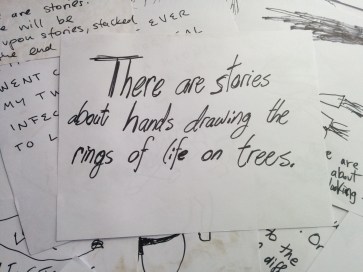 are stories.
will be
upon stories, stacked EVER
the end
WENT
MY
INFEC
TO L
There are stories
about hands drawing the
rings of life on trees.
are
about
Or
to the